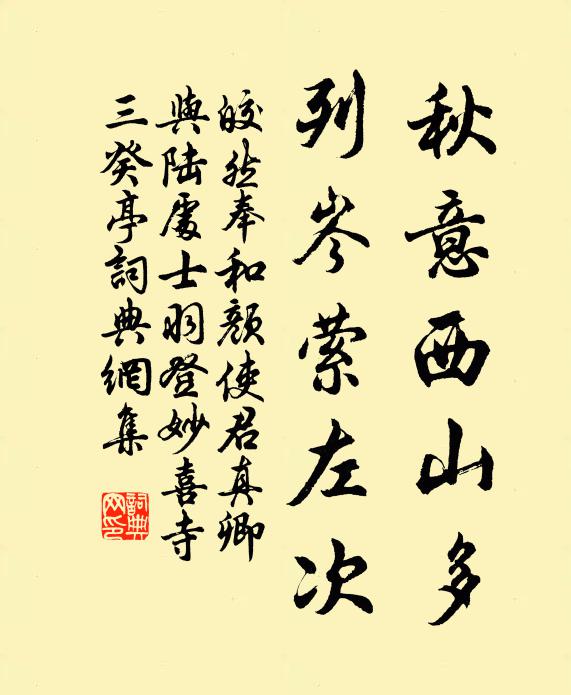 秋意西山多
列岑縈左次
皎然奉和顏使君真卿
與陸處士羽登妙喜寺
三癸亭詞典網集
詞典
网印